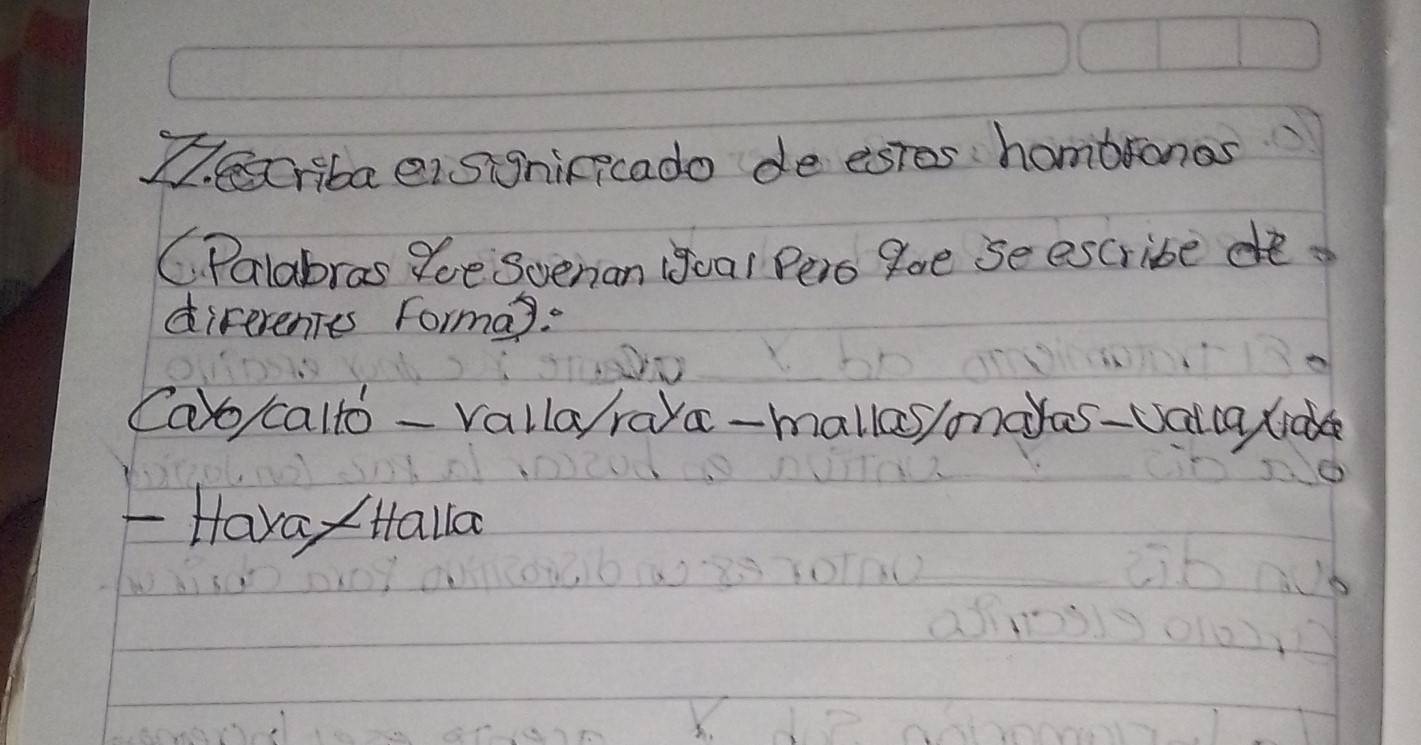 II. escriba el significado de estos hombronos
(Palabras que suenan igual Pero que se escribe de
diferentes Forma):
Cayo/calló - ralla/raya - mallas/mayas - valla/vaya
- Haya/Halla